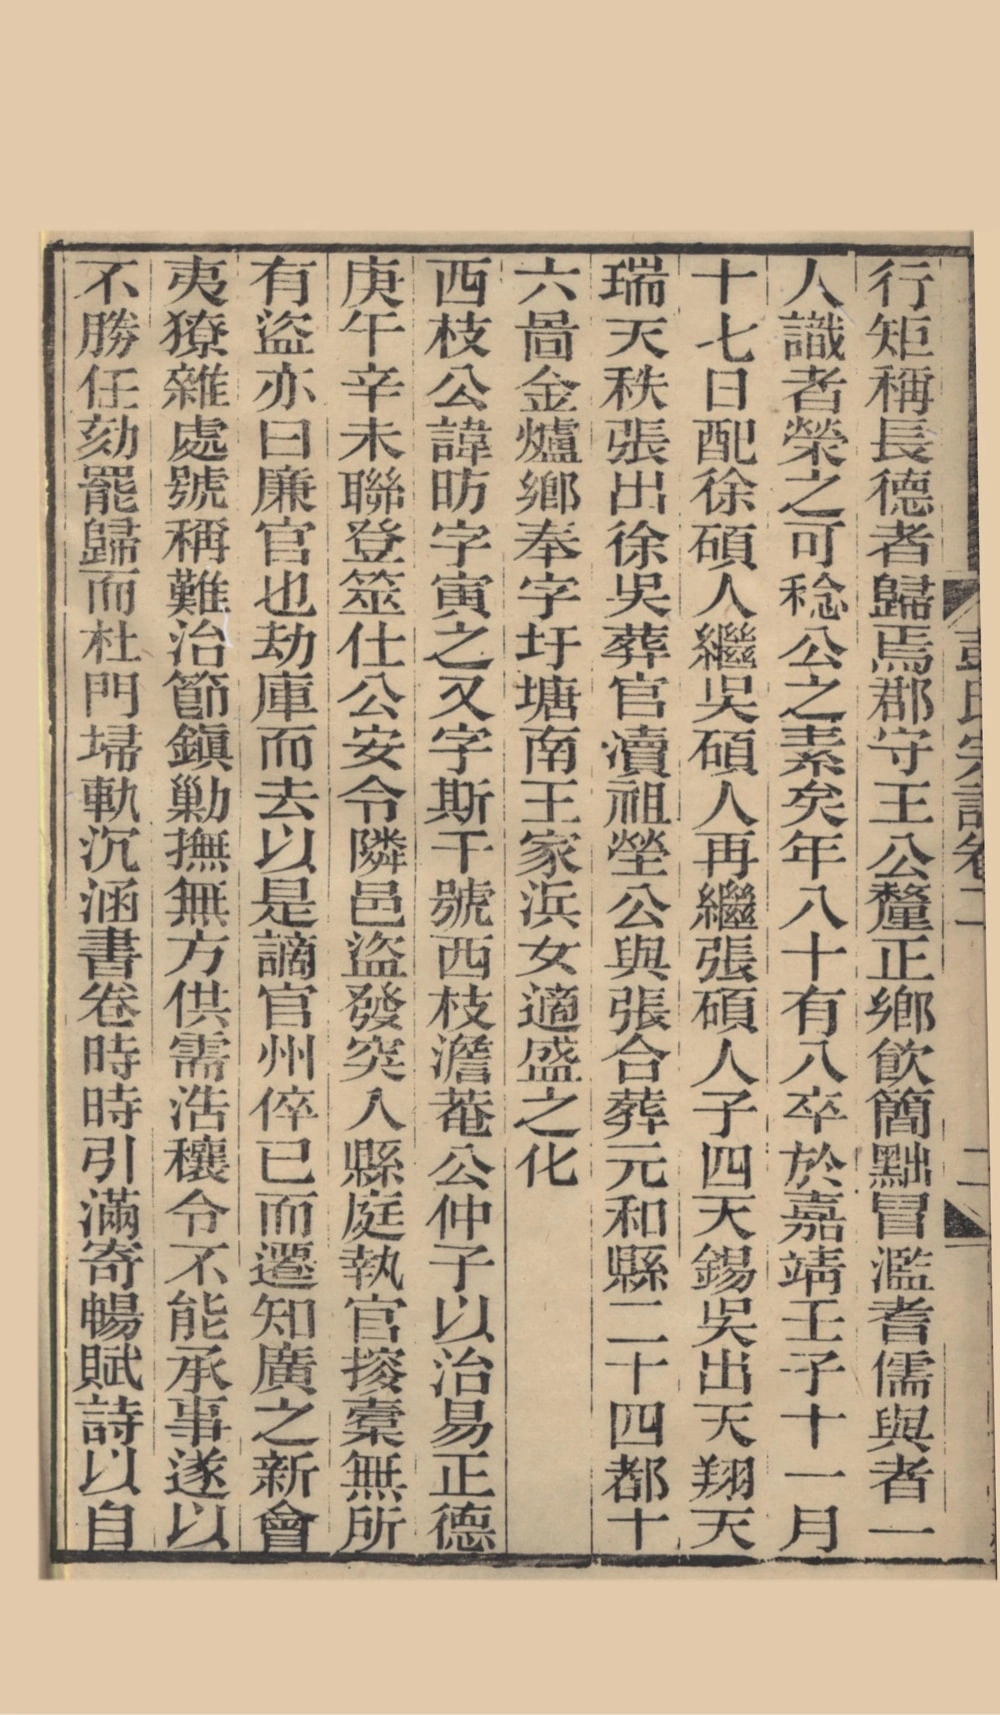 彭氏宗譜卷二
二
行矩稱長德者歸焉郡守王公釐正鄉飲簡黜冒濫耆儒與者一
人識者榮之可稔公之素矣年八十有八卒於嘉靖壬子十一月
十七日配徐碩人繼吳碩人再繼張碩人子四天錫吳出天翔天
瑞天秩張出徐吳葬官瀆祖塋公與張合葬元和縣二十四都十
六啚金爐鄉奉字圩塘南王家浜女適盛之化
西枝公諱昉字寅之又字斯干號西枝澹菴公仲子以治易正德
庚午辛未聯登筮仕公安令隣邑盜發突入縣庭執官搜橐無所
有盜亦曰廉官也劫庫而去以是謫官州倅已而遷知廣之新會
夷獠雜處號稱難治節鎮勦撫無方供需浩穰令不能承事遂以
不勝任劾罷歸而杜門埽軌沉涵書卷時時引滿寄暢賦詩以自